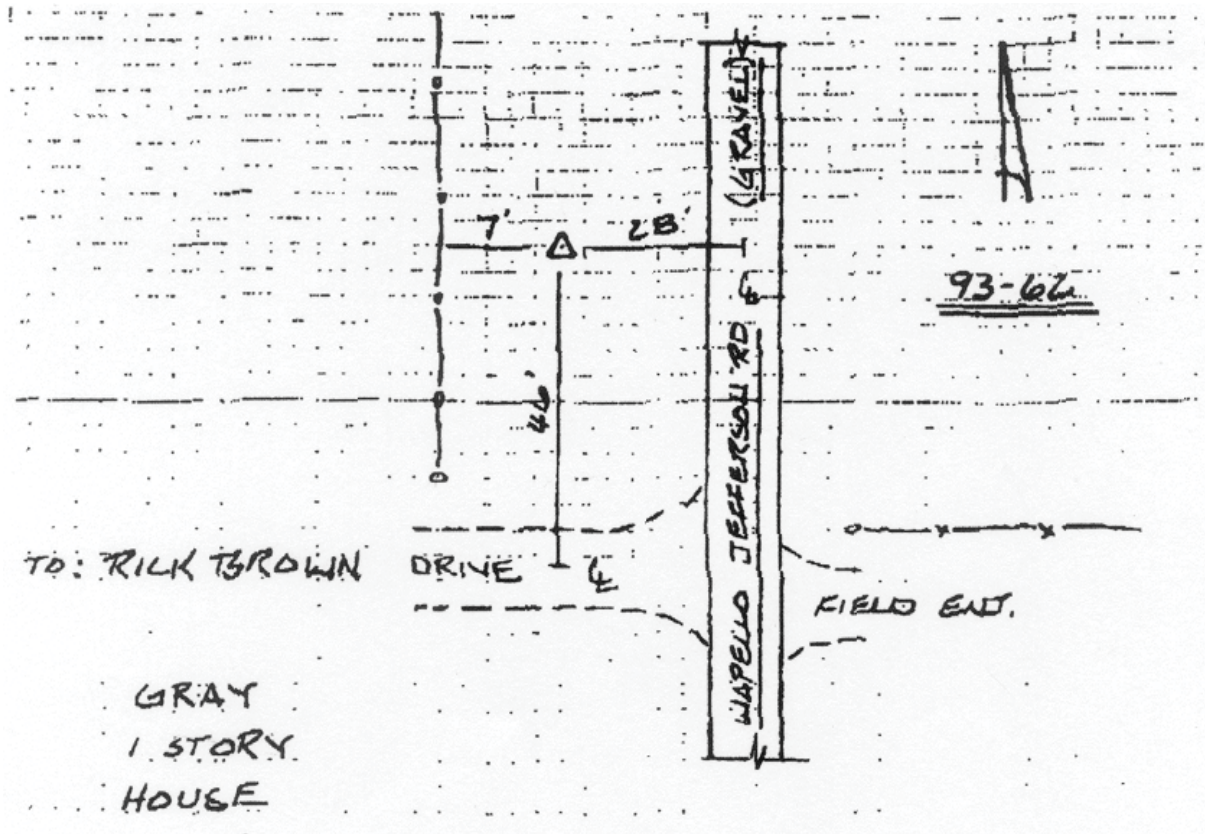 (GRAVEL)
7'
28'
℄
93-62
46'
WAPELLO JEFFERSON RD
TO: RICK BROWN
DRIVE
℄
FIELD ENT.
GRAY
1 STORY
HOUSE